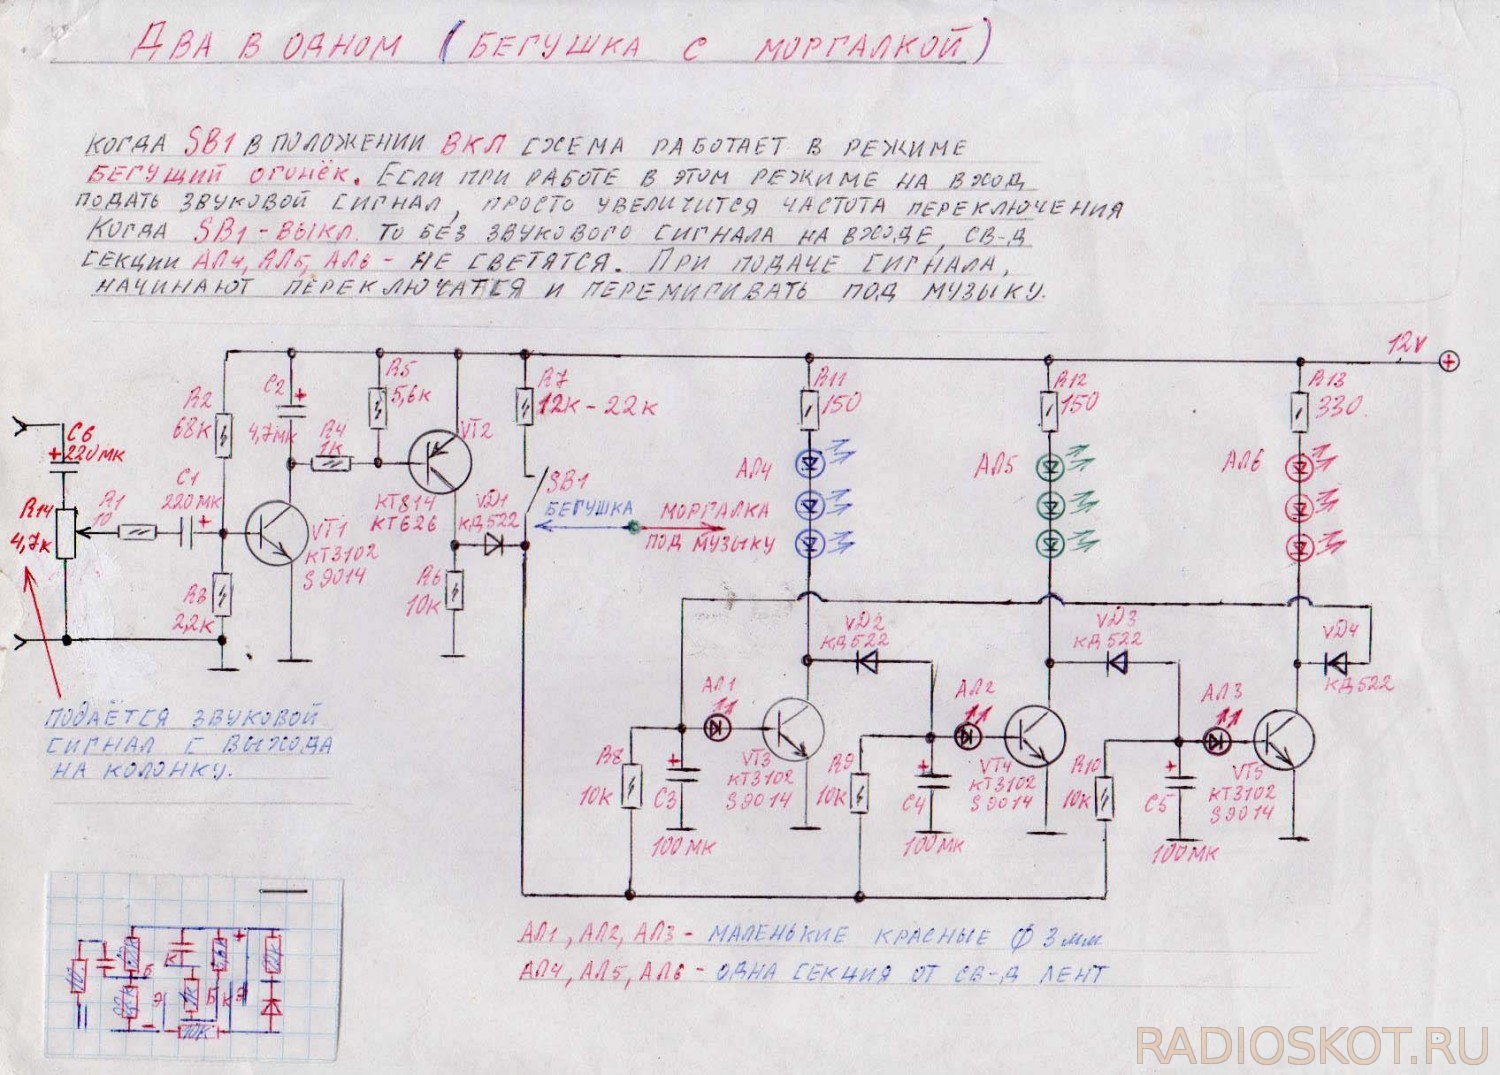 ДВА В ОДНОМ (БЕГУШКА С МОРГАЛКОЙ)
КОГДА SB1 В ПОЛОЖЕНИИ ВКЛ СХЕМА РАБОТАЕТ В РЕЖИМЕ
БЕГУЩИЙ ОГОНЁК. ЕСЛИ ПРИ РАБОТЕ В ЭТОМ РЕЖИМЕ НА ВХОД
ПОДАТЬ ЗВУКОВОЙ СИГНАЛ, ПРОСТО УВЕЛИЧИТСЯ ЧАСТОТА ПЕРЕКЛЮЧЕНИЯ
КОГДА SB1 - ВЫКЛ. ТО БЕЗ ЗВУКОВОГО СИГНАЛА НА ВХОДЕ, СВ-Д
СЕКЦИИ АЛ4, АЛ5, АЛ6 - НЕ СВЕТЯТСЯ. ПРИ ПОДАЧЕ СИГНАЛА,
НАЧИНАЮТ ПЕРЕКЛЮЧАТСЯ И ПЕРЕМИГИВАТЬ ПОД МУЗЫКУ.
12V
C6
+ 220МК
R14
4,7К
R1
10
C1
220МК
+
R2
68К
R3
2,2К
C2
+
4,7МК
R4
1К
R5
5,6К
VT1
КТ3102
S9014
VT2
КТ814
КТ626
VД1
КД522
R6
10К
R7
12К - 22К
SB1
БЕГУШКА
МОРГАЛКА
ПОД МУЗЫКУ
R11
150
R12
150
R13
330
АЛ4
АЛ5
АЛ6
VД2
КД522
VД3
КД522
VД4
КД522
АЛ1
АЛ2
АЛ3
R8
10К
+
C3
100МК
VT3
КТ3102
S9014
R9
10К
+
C4
100МК
VT4
КТ3102
S9014
R10
10К
+
C5
100МК
VT5
КТ3102
S9014
ПОДАЁТСЯ ЗВУКОВОЙ
СИГНАЛ С ВЫХОДА
НА КОЛОНКУ.
АЛ1, АЛ2, АЛ3 - МАЛЕНЬКИЕ КРАСНЫЕ Ф 3мм
АЛ4, АЛ5, АЛ6 - ОДНА СЕКЦИЯ ОТ СВ-Д ЛЕНТ
10К
RADIOSKOT.RU